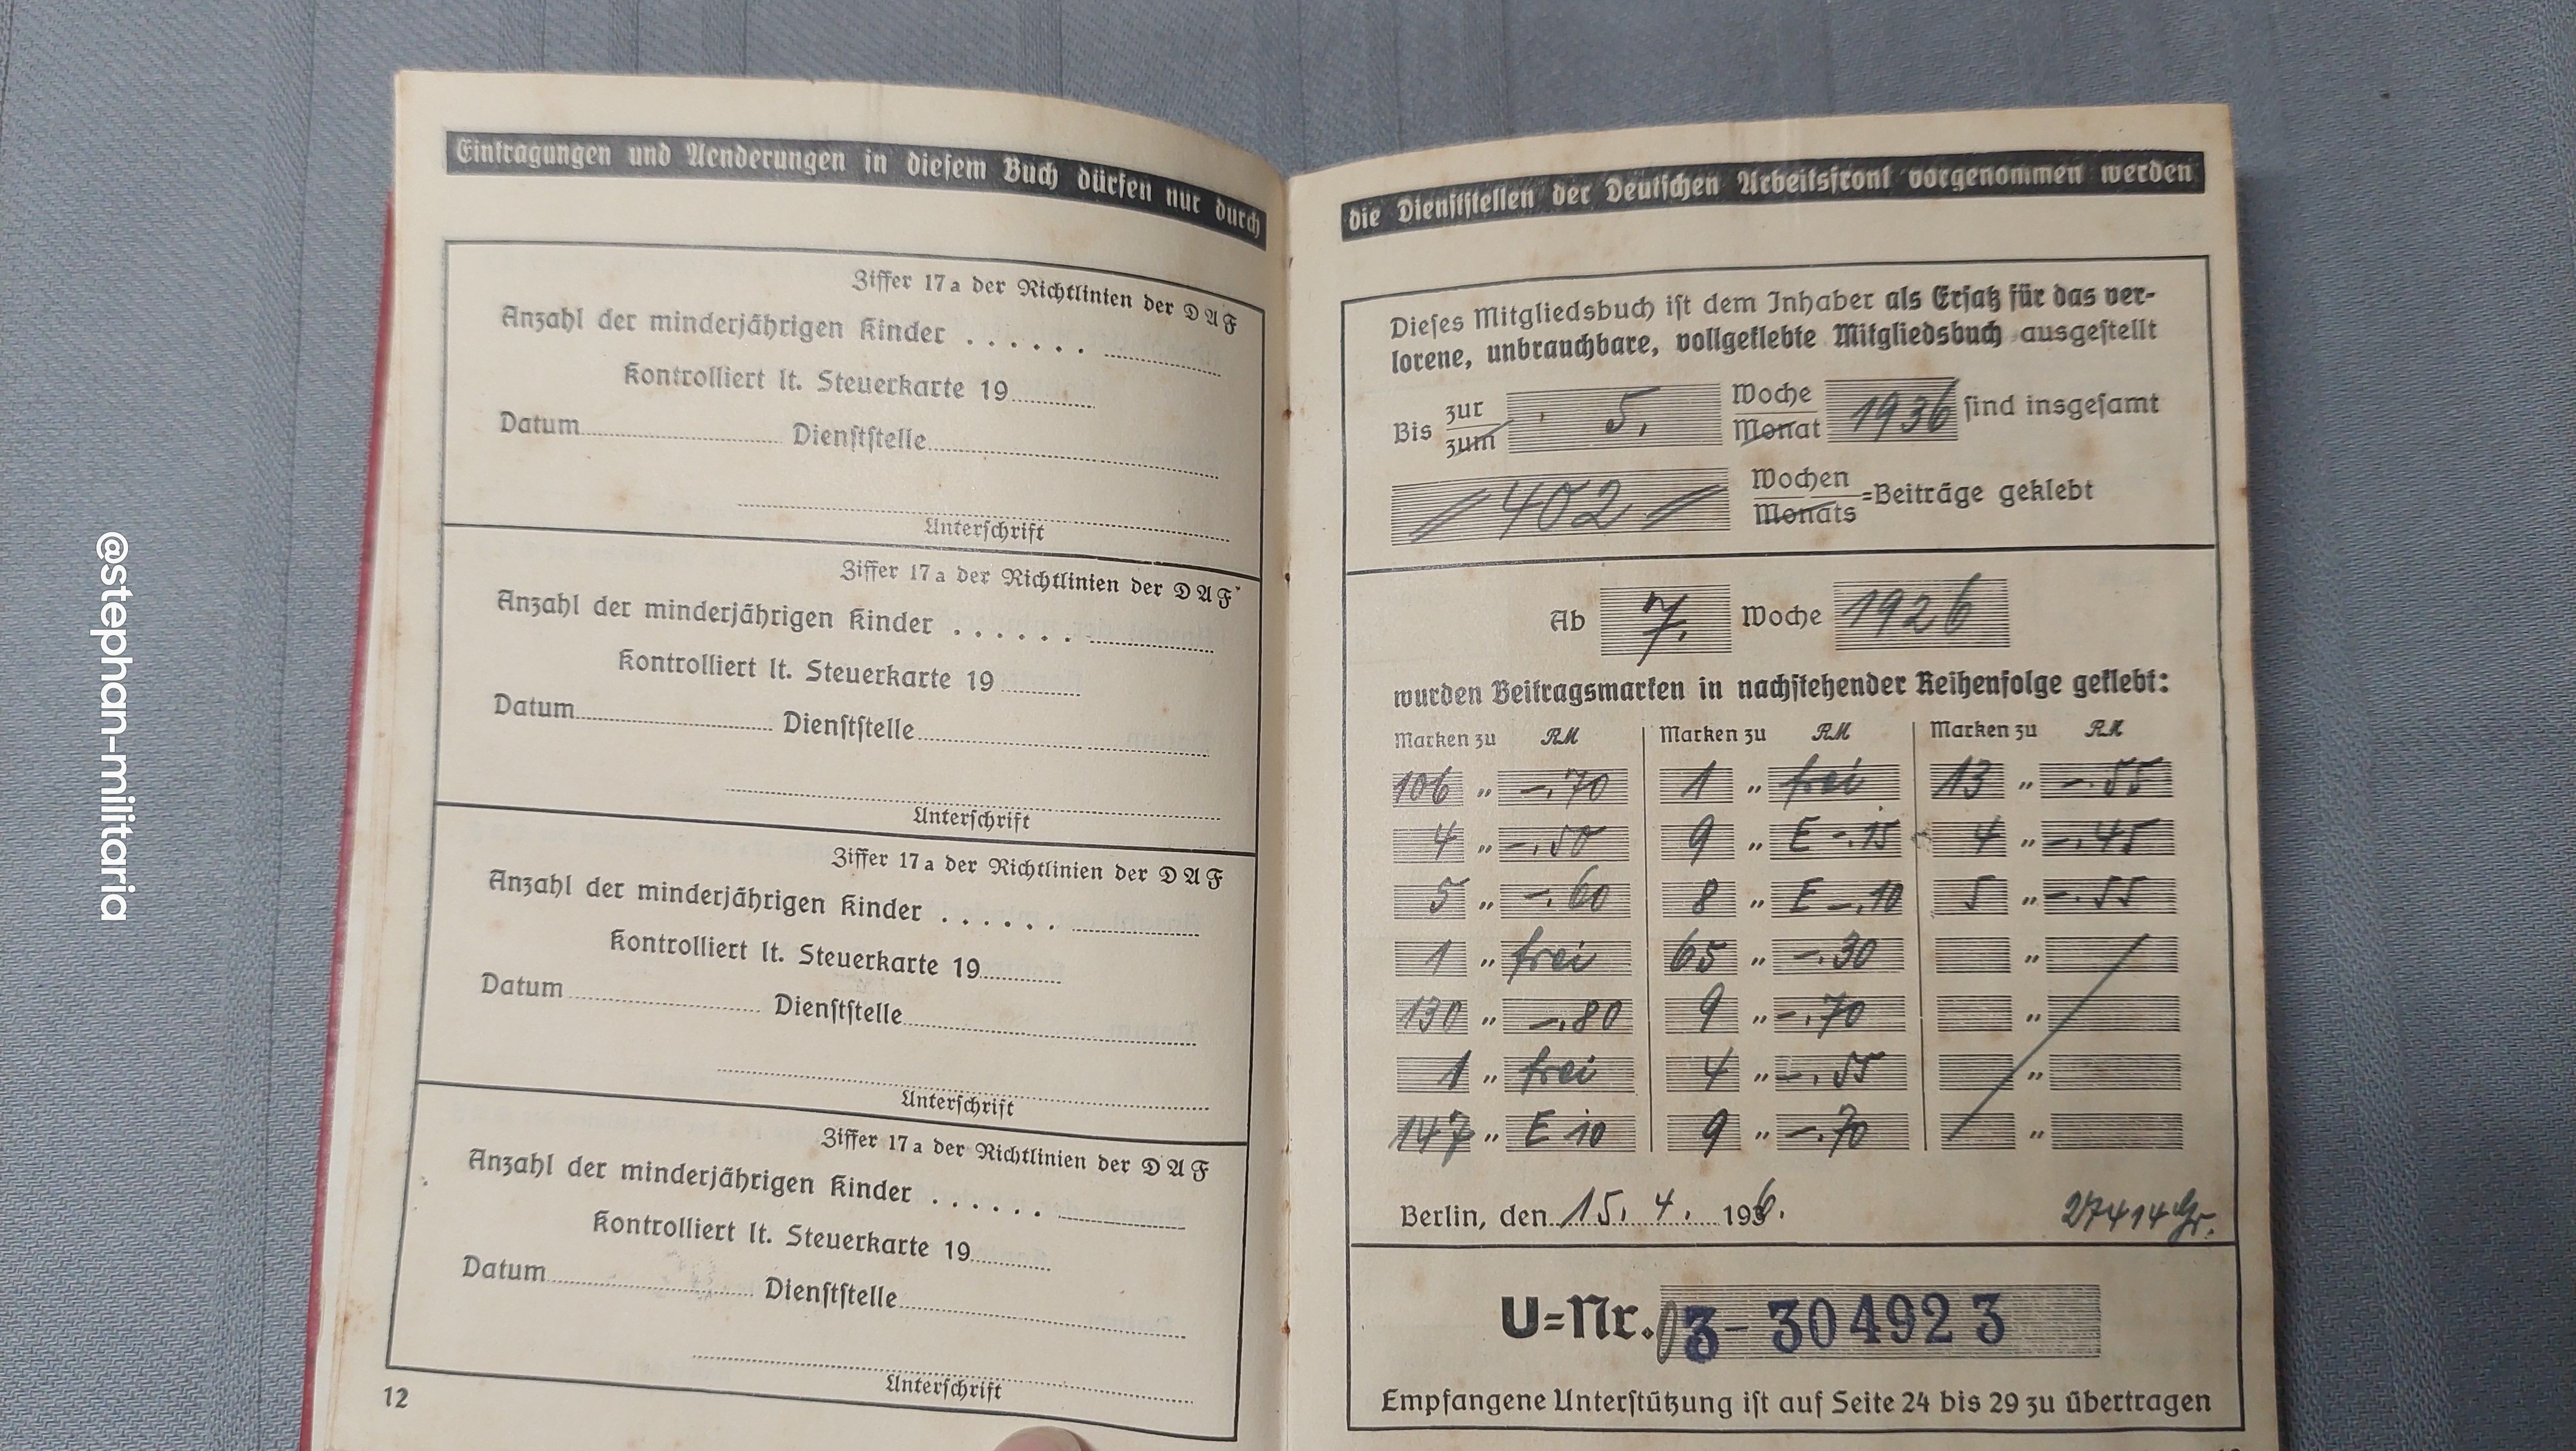 @stephan-militaria
Eintragungen und Aenderungen in diesem Buch dürfen nur durch
Ziffer 17a der Richtlinien der DAF
Anzahl der minderjährigen Kinder ......
Kontrolliert lt. Steuerkarte 19
Datum Dienststelle
Unterschrift
Ziffer 17a der Richtlinien der DAF
Anzahl der minderjährigen Kinder ......
Kontrolliert lt. Steuerkarte 19
Datum Dienststelle
Unterschrift
Ziffer 17a der Richtlinien der DAF
Anzahl der minderjährigen Kinder ......
Kontrolliert lt. Steuerkarte 19
Datum Dienststelle
Unterschrift
Ziffer 17a der Richtlinien der DAF
Anzahl der minderjährigen Kinder ......
Kontrolliert lt. Steuerkarte 19
Datum Dienststelle
Unterschrift
12
die Dienststellen der Deutschen Arbeitsfront vorgenommen werden
Dieses Mitgliedsbuch ist dem Inhaber als Ersatz für das ver-
lorene, unbrauchbare, vollgeklebte Mitgliedsbuch ausgestellt
Bis zur zum 5. Woche Monat 1936 sind insgesamt
402 Wochen Monats =Beiträge geklebt
Ab 7. Woche 1926
wurden Beitragsmarken in nachstehender Reihenfolge geklebt:
Marken zu RM Marken zu RM Marken zu RM
106 " -.70 1 " frei 13 " -.55
4 " -.50 9 " E -.15 4 " -.45
5 " -.60 8 " E -.10 5 " -.55
1 " frei 65 " -.30 "
130 " -.80 9 " -.70 "
1 " frei 4 " -.55 "
147 " E 10 9 " -.70 "
Berlin, den 15. 4. 1936. 27414 Gr.
U=Nr. 03-304923
Empfangene Unterstützung ist auf Seite 24 bis 29 zu übertragen